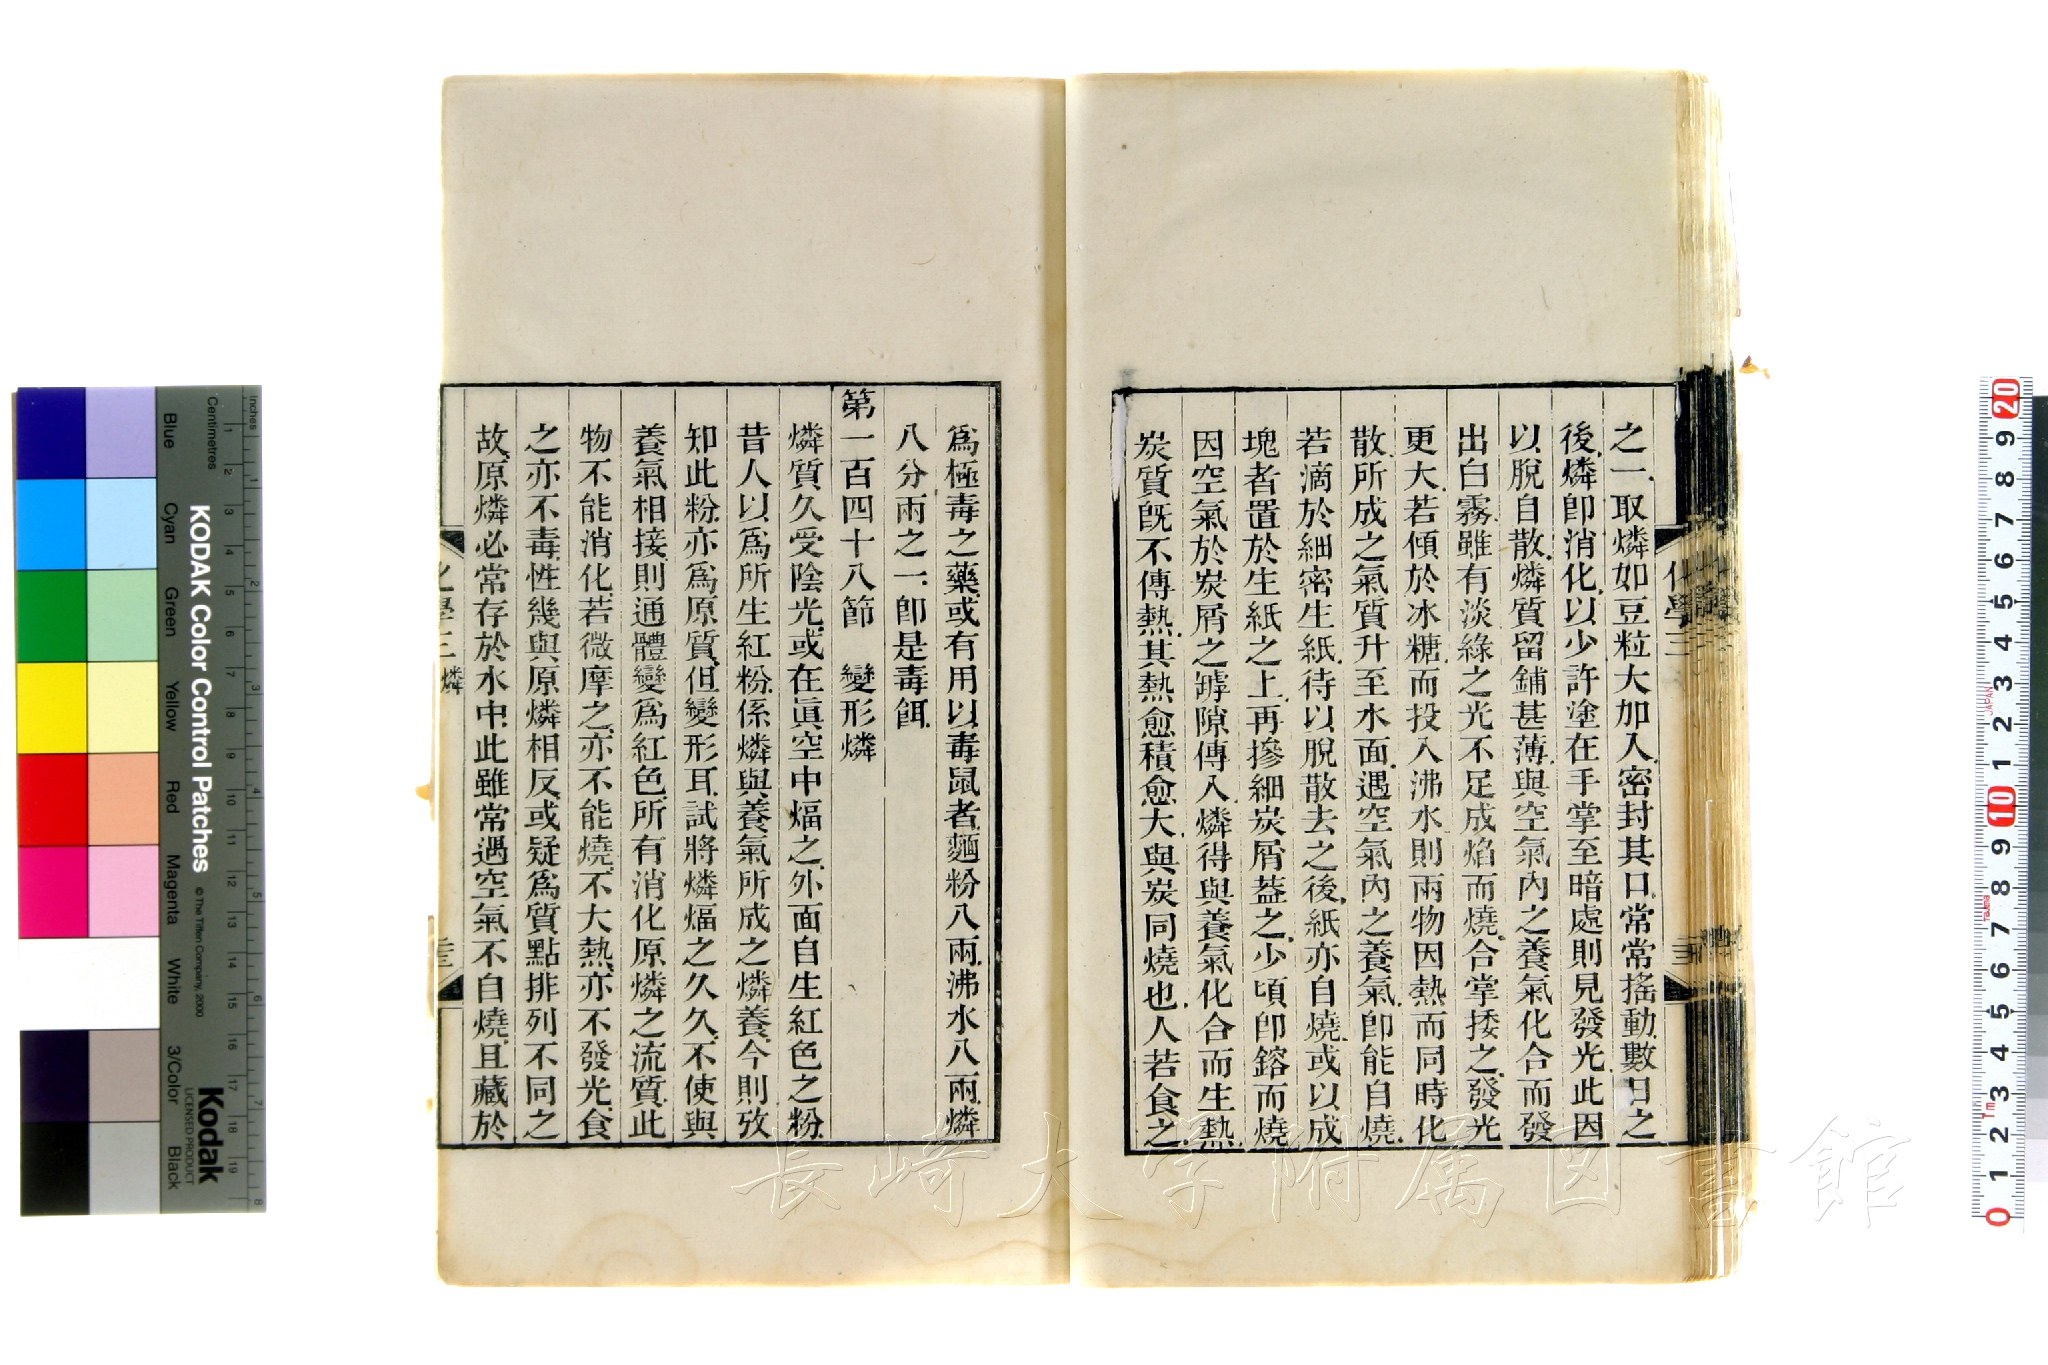 之一、取燐如豆粒大加入、密封其口、常常搖動、數日之
後、燐卽消化、以少許塗在手掌至暗處則見發光、此因
以脫自散、燐質留鋪甚薄、與空氣內之養氣化合而發
出白霧、雖有淡綠之光不足成焰而燒、合掌捼之、發光
更大、若傾於冰糖、而投入沸水則兩物因熱而同時化
散、所成之氣質升至水面、遇空氣內之養氣、卽能自燒、
若滴於細密生紙、待以脫散去之後、紙亦自燒、或以成
塊者置於生紙之上、再摻細炭屑葢之、少頃卽鎔而燒
因空氣於炭屑之罅隙傳入、燐得與養氣化合而生熱、
炭質旣不傳熱、其熱愈積愈大、與炭同燒也、人若食之、
化學三
爲極毒之藥、或有用以毒鼠者、麵粉八兩、沸水八兩、燐
八分兩之一、卽是毒餌、
第一百四十八節 變形燐
燐質久受陰光、或在眞空中煏之、外面自生紅色之粉、
昔人以爲所生紅粉、係燐與養氣所成之燐養、今則攷
知此粉、亦爲原質、但變形耳、試將燐煏之久久、不使與
養氣相接、則通體變爲紅色、所有消化原燐之流質、此
物不能消化、若微摩之、亦不能燒、不大熱、亦不發光、食
之亦不毒、性幾與原燐相反、或疑爲質點排列不同之
故、原燐必常存於水中、此雖常遇空氣不自燒、且藏於
化學三 燐
KODAK Color Control Patches
© The Tiffen Company, 2000
Kodak
LICENSED PRODUCT
Inches
Centimetres
Blue
Cyan
Green
Yellow
Red
Magenta
White
3/Color
Black
1 2 3 4 5 6 7 8 9 10 11 12 13 14 15 16 17 18 19
1 2 3 4 5 6 7 8
0 1 2 3 4 5 6 7 8 9 10 1 2 3 4 5 6 7 8 9 20
JAPAN
長崎大学附属図書館